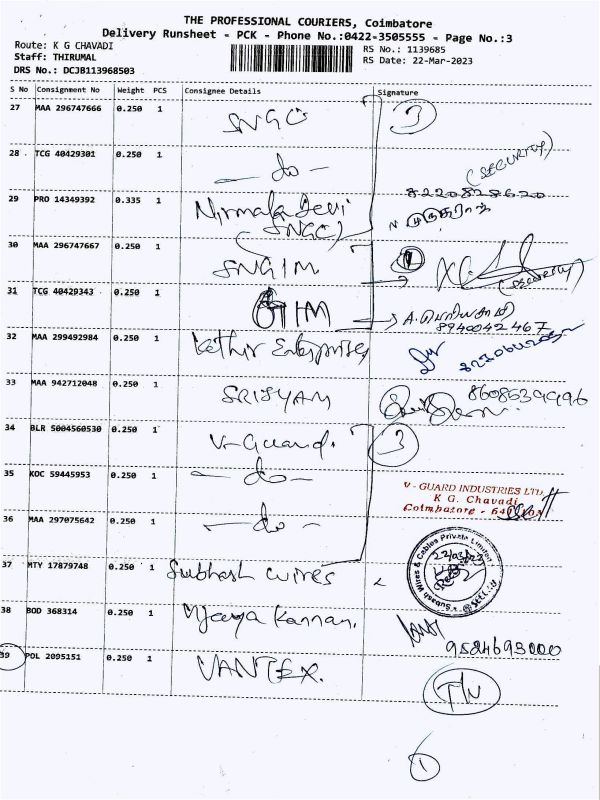 THE PROFESSIONAL COURIERS, Coimbatore
Delivery Runsheet - PCK - Phone No.:0422-3505555 - Page No.:3
Route: K G CHAVADI
RS No.: 1139685
Staff: THIRUMAL
RS Date: 22-Mar-2023
DRS No.: DCJB113968503
S No Consignment No Weight PCS Consignee Details Signature
27 MAA 296747666 0.250 1 SNGC 3
28 TCG 40429301 0.250 1 - do - (SECURITY)
8220828620
29 PRO 14349392 0.335 1 Nirmala Devi
(SNGC)
30 MAA 296747667 0.250 1 SNGIM 1
(Security)
31 TCG 40429343 0.250 1 GTIM
8940042467
32 MAA 299492984 0.250 1 Kathir Enterprises
33 MAA 942712048 0.250 1 SRISYAM 8608539496
34 BLR 5004560530 0.250 1 V-Guard. 3
35 KOC 59445953 0.250 1 - do -
V - GUARD INDUSTRIES LTD.
K G. Chavadi
Coimbatore -
36 MAA 297075642 0.250 1 - do -
37 MTY 17879748 0.250 1 Subhash wires
Subash Wires & Cables Private Limited
22/03/23
38 BOD 368314 0.250 1 Vijaya Kannan.
9524693000
39 POL 2095151 0.250 1 VANTEX.
T/N
1